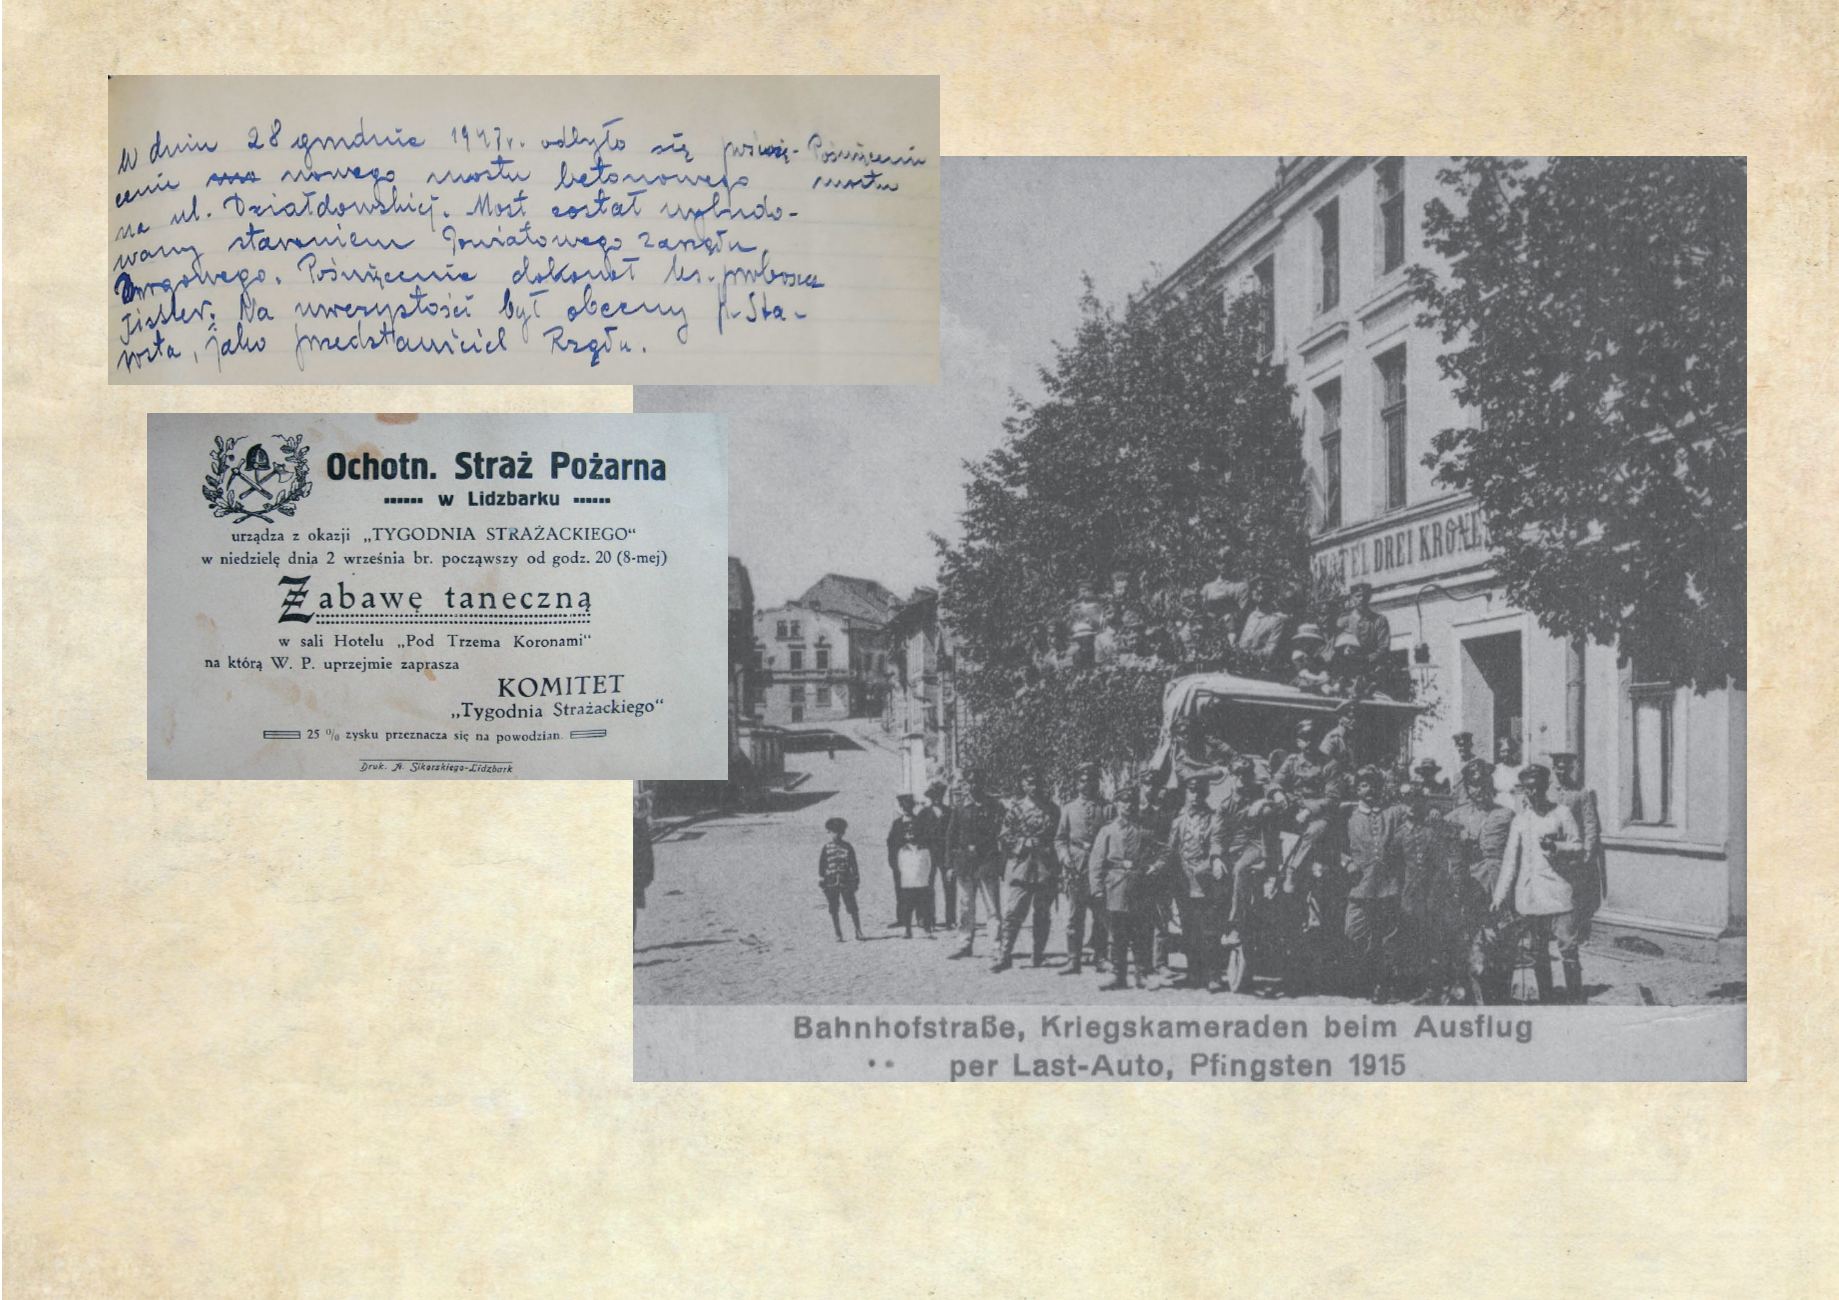 W dniu 28 grudnia 1947r. odbyło się poświę-
cenie nowego mostu betonowego
na ul. Działdowskiej. Most został wybudo-
wany staraniem Powiatowego Zarządu
Drogowego. Poświęcenia dokonał ks. proboszcz
Na uroczystości był obecny p. Sta-
rosta, jako przedstawiciel Rządu.
Poświęcenie
mostu
Ochotn. Straż Pożarna
w Lidzbarku
urządza z okazji „TYGODNIA STRAŻACKIEGO“
w niedzielę dnia 2 września br. począwszy od godz. 20 (8-mej)
Zabawę taneczną
w sali Hotelu „Pod Trzema Koronami“
na którą W. P. uprzejmie zaprasza
KOMITET
„Tygodnia Strażackiego“
25 % zysku przeznacza się na powodzian.
Druk. A. Sikorskiego-Lidzbark
HOTEL DREI KRONE
Bahnhofstraße, Kriegskameraden beim Ausflug
per Last-Auto, Pfingsten 1915